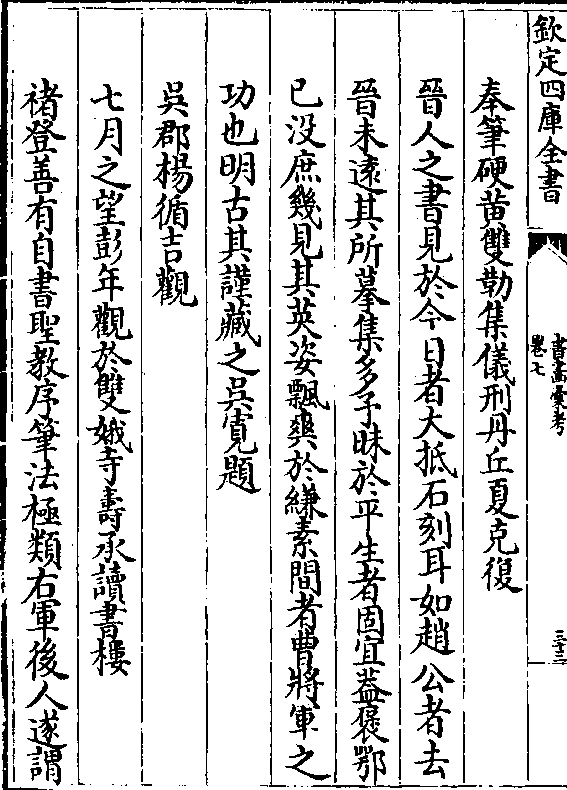 欽定四庫全書
書畫彙考
卷七
三十三
奉筆硬黃雙勒集儀刑丹丘夏克復
晉人之書見於今日者大抵石刻耳如趙公者去
晉未遠其所摹集多予昧於平生者固宜葢褒鄂
已没庶幾見其英姿飄爽於縑素間者曹將軍之
功也明古其謹藏之吳寛題
吳郡楊循吉觀
七月之望彭年觀於雙娥寺壽承讀書樓
禇登善有自書聖教序筆法極類右軍後人遂謂